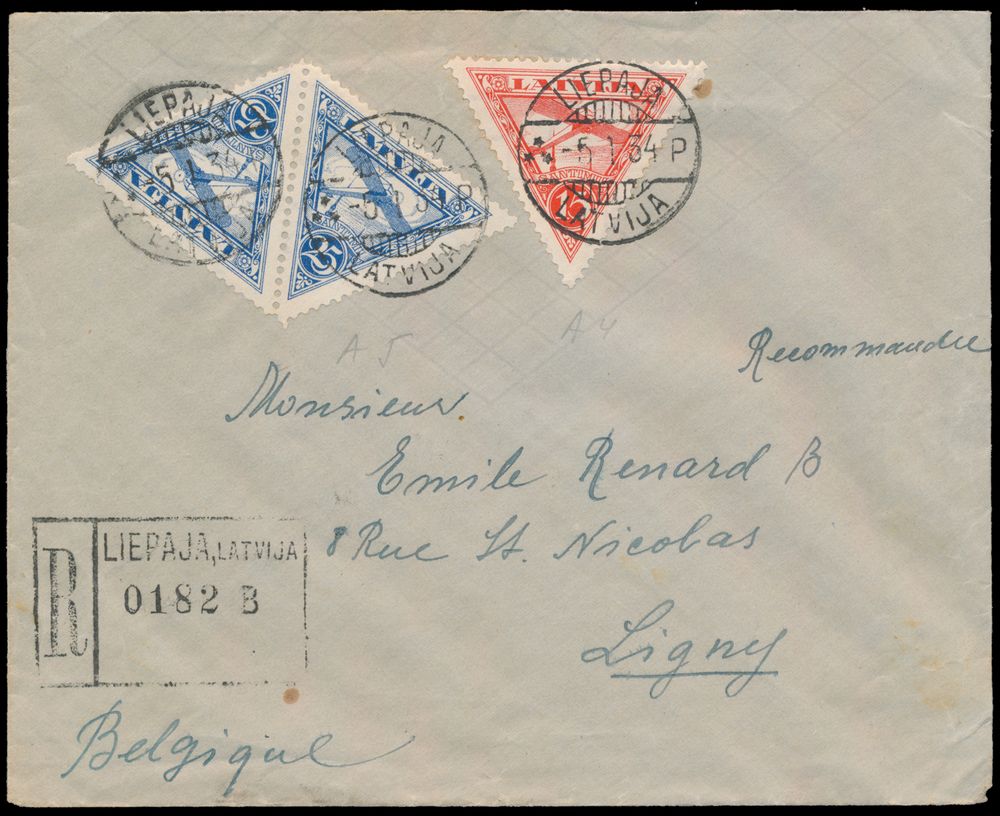 LATVIJA
25
LATVIJA
25
LATVIJA
15
LIEPAJA
-5 1 34
LATVIJA
LIEPAJA
-5 1 34 P
LATVIJA
LIEPAJA
-5 1 34 P
LATVIJA
A 5
A 4
Recommandée
Monsieur
Emile Renard B
8 Rue St. Nicolas
Ligny
R
LIEPAJA, LATVIJA
0182 B
Belgique